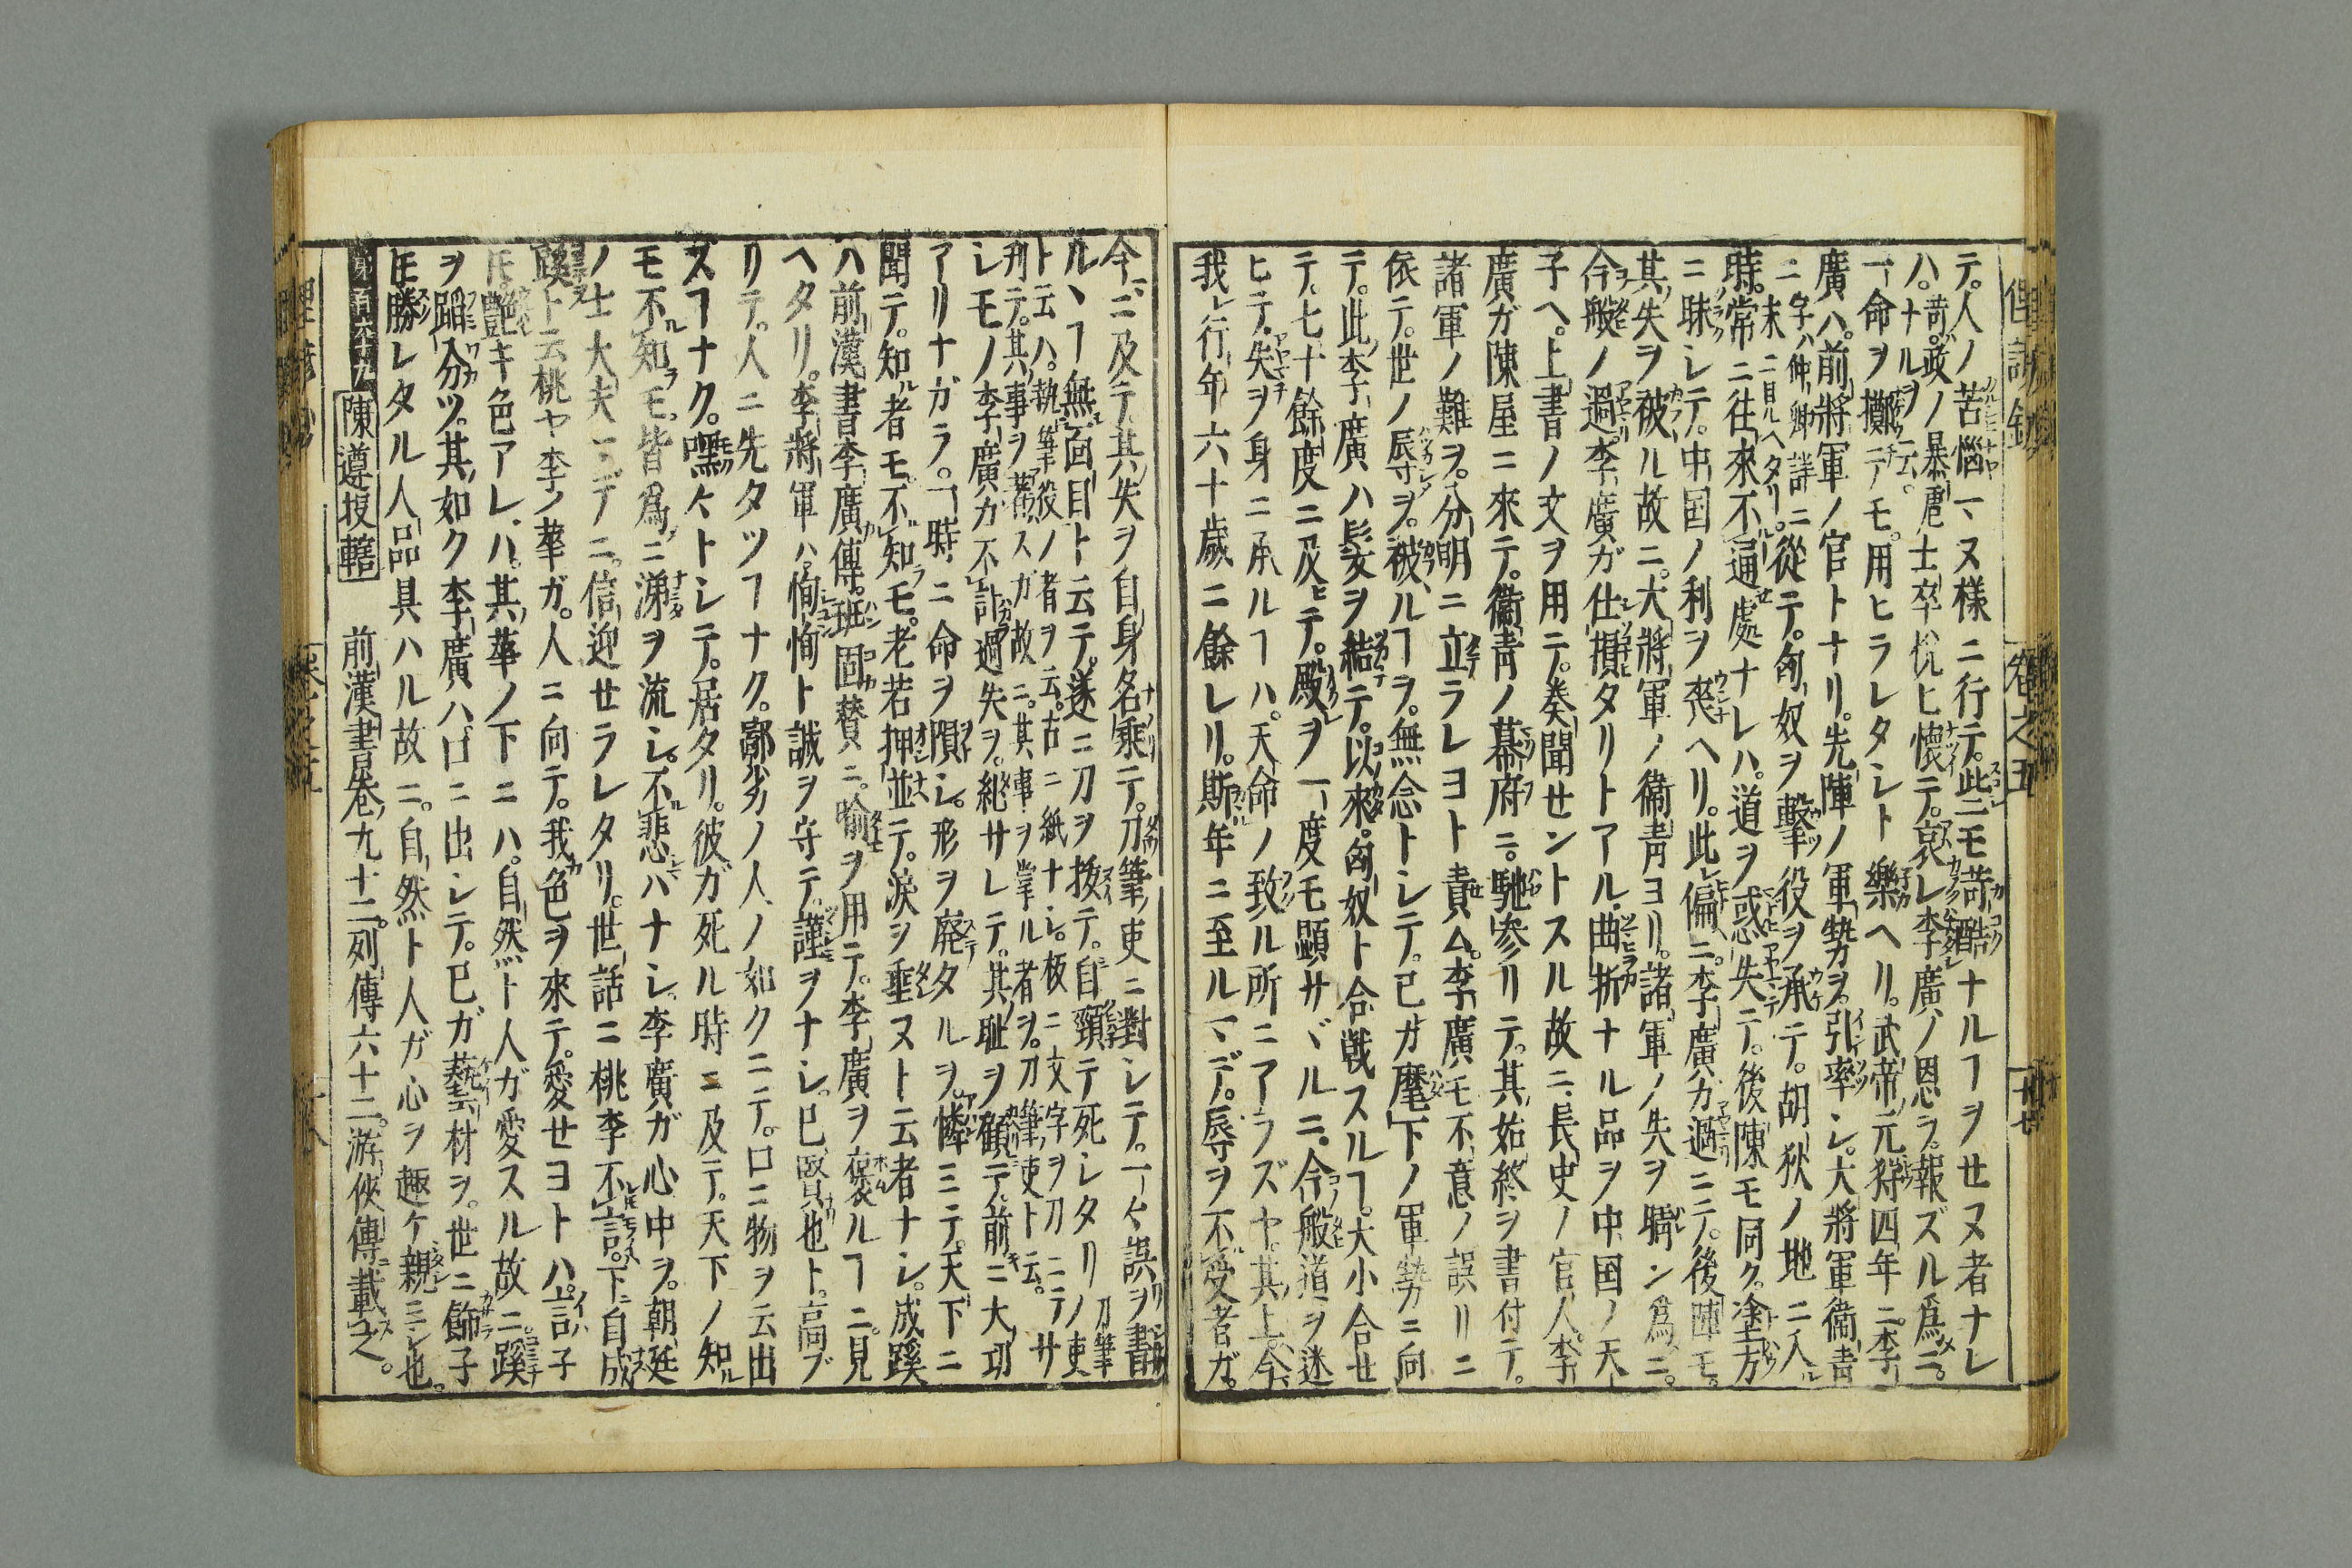 俚諺鈔
卷之五
廿七
テ。人ノ苦惱マヌ様ニ行テ。些モ苛酷ナルヿヲセヌ者ナレ
ハ。苛政ノ暴虐ナルヲ云。士卒悦ヒ懷テ。哀レ李廣ノ恩ヲ報ズル爲ニ。
一命ヲ擲テモ。用ヒラレタシト樂ヘリ。武帝ノ元狩四年ニ。李
廣ハ。前將軍ノ官トナリ。先陣ノ軍勢ヲ。引率シ。大將軍衞青
ニ字ハ仲卿詳ニ末ニ見ヘタリ。從テ。匈奴ヲ擊役ヲ承テ。胡狄ノ地ニ入ル
時。常ニ往來不通處ナレハ。道ヲ惑失テ。後陳モ同ク。塗方
ニ昧シテ。中国ノ利ヲ喪ヘリ。此レ偏ニ。李廣カ過ニテ。後陣モ。
其失ヲ被ル故ニ。大將軍ノ衞青ヨリ。諸軍ノ失ヲ購ン爲ニ。
今般ノ過。李廣ガ仕損タリトアル。曲折ナル品ヲ。中国ノ天
子ヘ。上書ノ文ヲ用テ。奏聞セントスル故ニ。長史ノ官人。李
廣ガ陳屋ニ來テ。衞青ノ幕府ニ。馳參リテ。其始終ヲ書付テ。
諸軍ノ難ヲ。分明ニ立ラレヨト責ム。李廣モ不意ノ誤リニ
依テ。世ノ辱ヲ。被ルヿヲ。無念トシテ。已ガ麾下ノ軍勢ニ向
テ。此李廣ハ髮ヲ結テ。以來。匈奴ト合戰スルヿ。大小合セ
テ。七十餘度ニ及ヒテ。殿ヲ一度モ顯サヾルニ。今般道ヲ迷
ヒテ。失ヲ身ニ承ルヿハ。天命ノ致ル所ニアラズヤ。其上今
我レ行年六十歲ニ餘レリ。斯年ニ至ルマデ。辱ヲ不受者ガ。
今ニ及テ。其失ヲ自身名乘テ。刀筆吏ニ對シテ。一々誤ヲ書
ルヽヿ無面目ト云テ。遂ニ刀ヲ拔テ。自頸テ死シタリ刀筆ノ吏
ト云ハ。執筆役ノ者ヲ云。古ニ紙ナシ。板ニ文字ヲ刀ニテサ
刋テ。其事ヲ著スガ故ニ。其事ヲ掌ル者ヲ。刀筆吏ト云。
レモノ李廣カ不計過失ヲ。紀サレテ。其耻ヲ顧テ。前ニ大功
アリナガラ。一時ニ命ヲ隕シ。形ヲ廃タルヲ。憐ミテ。天下ニ
聞テ。知者モ。不知モ。老若押並テ。涙ヲ垂ヌト云者ナシ。成蹊
ハ前漢書李廣傳。班固賛ニ。喻ヲ用テ。李廣ヲ褒ルヿニ。見
ヘタリ。李將軍ハ。恂恂ト誠ヲ守テ。謹ヲナシ。已賢也ト。高ブ
リテ。人ニ先タツヿナク。鄙劣ノ人ノ如クニテ。口ニ物ヲ云出
スヿナク。嘿々トシテ。居タリ。彼ガ死ル時ニ及テ。天下ノ知ル
モ不知モ。皆爲ニ涕ヲ流シ。不悲ハナシ。李廣ガ心中ヲ。朝廷
ノ士大夫マデニ。信迎セラレタリ。世話ニ桃李不言。下自成
蹊ト云桃ヤ李ノ華ガ。人ニ向テ。我色ヲ來テ。愛セヨトハ。言子
𪜈。艷キ色アレハ。其華ノ下ニハ。自然ト人ガ愛スル故ニ。蹊
ヲ蹈分ツ。其如ク李廣ハ。口ニ出シテ。已ガ藝材ヲ。世ニ飾子
𪜈勝レタル人品具ハル故ニ。自然ト人ガ心ヲ趣ケ親ミシ也。
第百六十九 陳遵投轄 前漢書卷九十二。列傳六十二。游俠傳ニ載之。